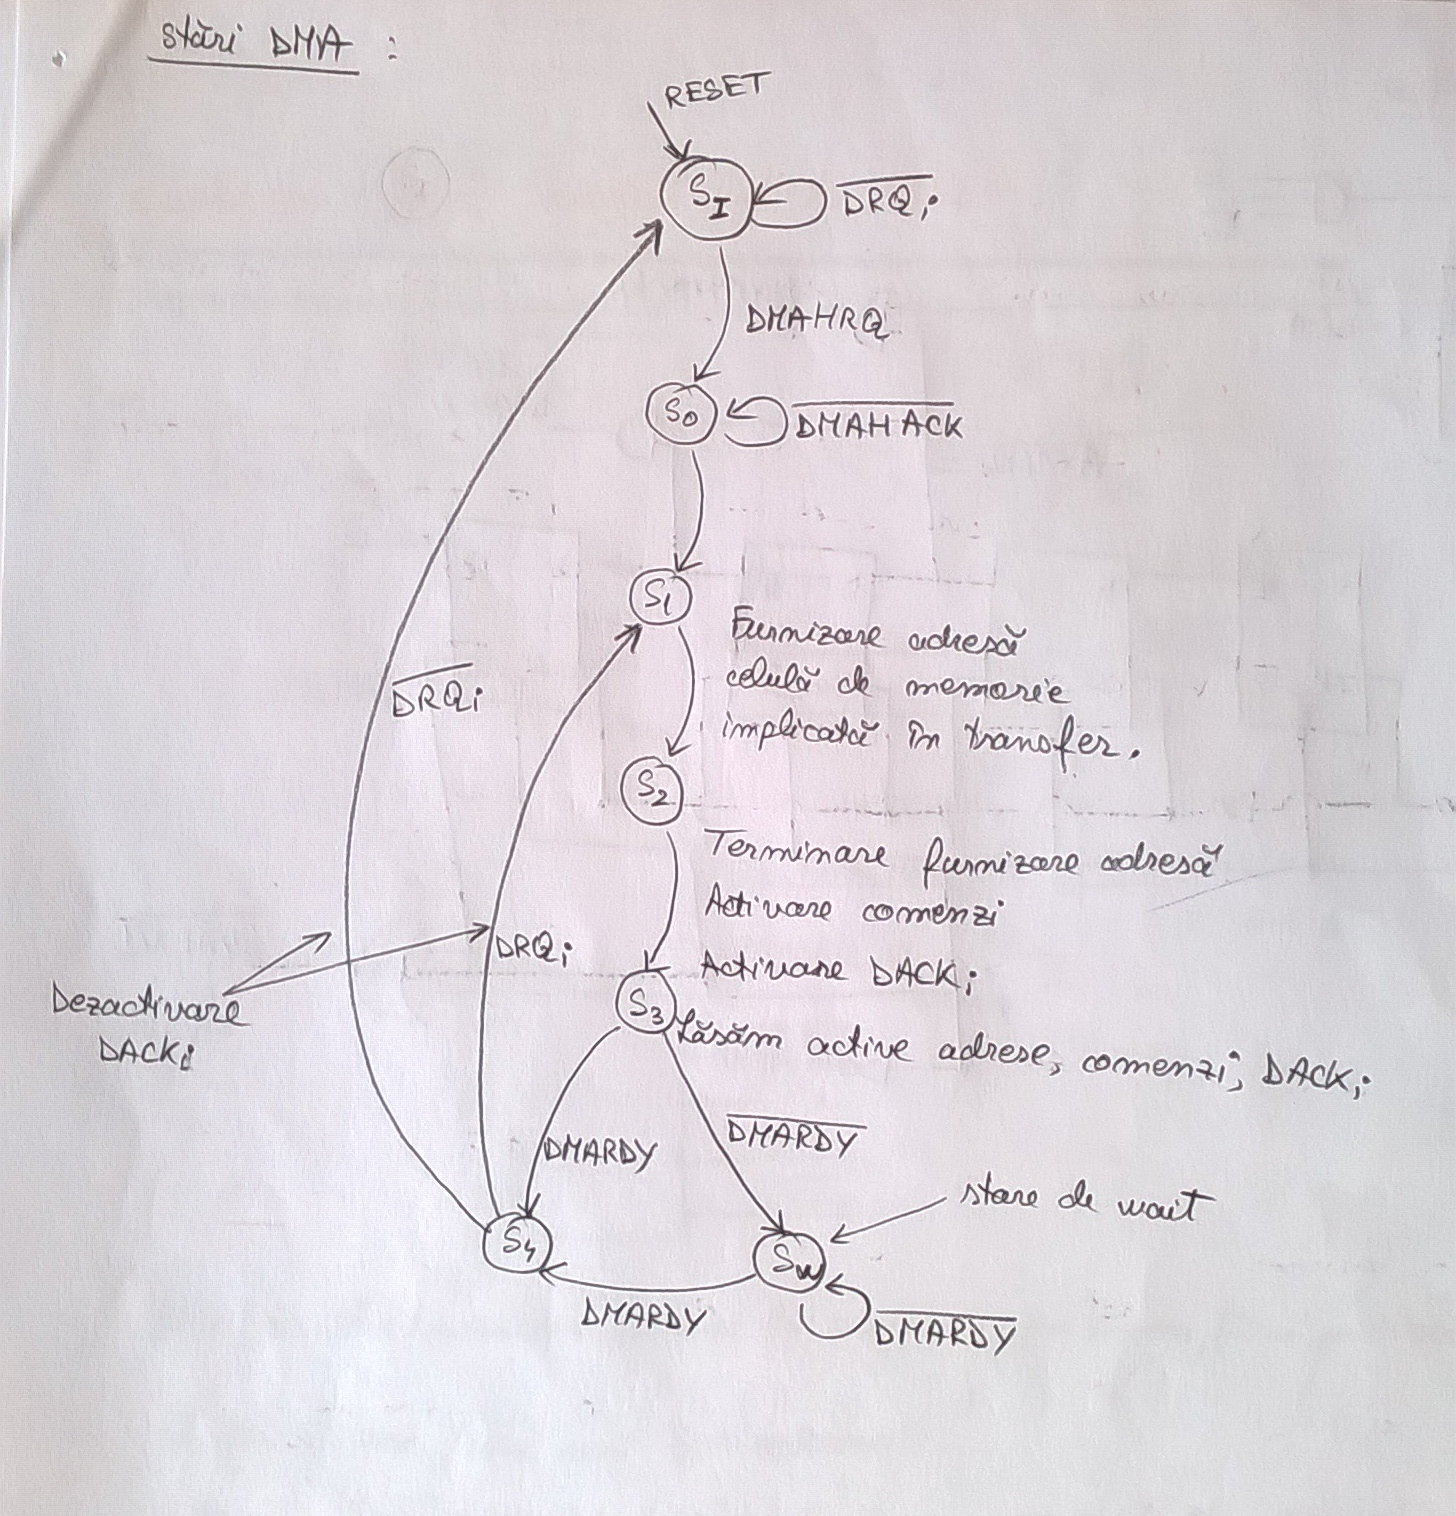 Stări DMA :
RESET
S_I
D̅R̅Q̅i
DMAHRQ
S0
D̅M̅A̅H̅A̅C̅K̅
S1
Furnizare adresă
celulă de memorie
implicată în transfer.
D̅R̅Q̅i
S2
Terminare furnizare adresă
Activare comenzi
DRQi
Activare DACKi
Dezactivare
DACKi
S3
Lăsăm active adrese, comenzi, DACKi
DMARDY
D̅M̅A̅R̅D̅Y̅
stare de wait
S4
Sw
DMARDY
D̅M̅A̅R̅D̅Y̅